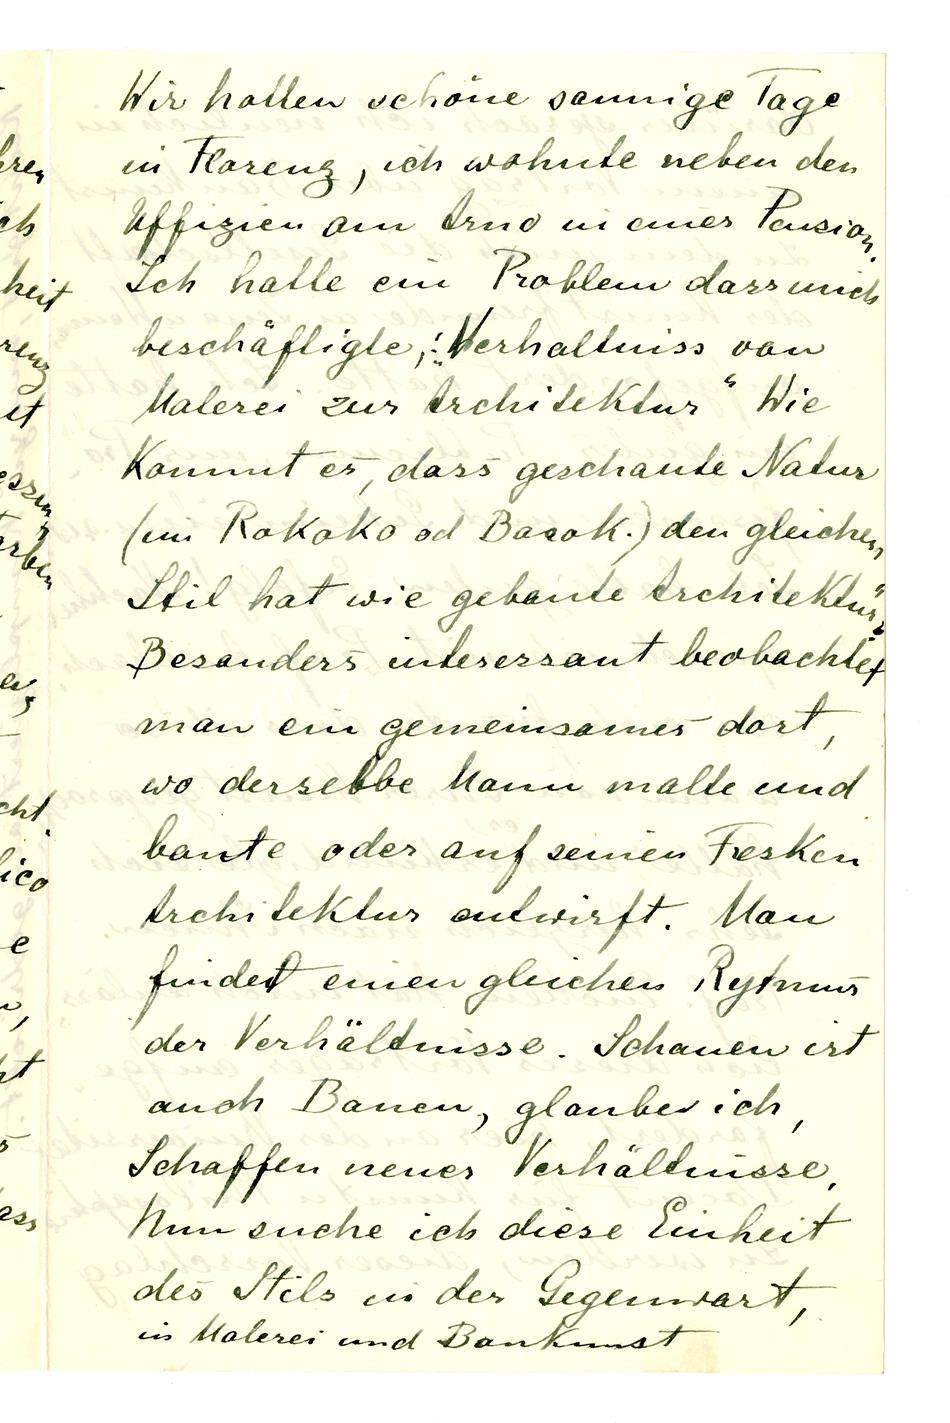 Wir hatten schöne sonnige Tage
in Florenz, ich wohnte neben den
Uffizien am Arno in einer Pension.
Ich hatte ein Problem dass mich
beschäftigte, : „Verhaltniss von
Malerei zur Architektur“ Wie
kommt es, dass geschaute Natur
(im Rokoko od Barok.) den gleichen
Stil hat wie gebaute Architektur“?
Besonders interessant beobachtet
man ein gemeinsames dort,
wo derselbe Mann malte und
baute oder auf seinen Fresken
Architektur entwirft. Man
findet einen gleichen Rytmus
der Verhältnisse. Schauen ist
auch Bauen, glaube ich,
Schaffen neuer Verhältnisse.
Nun suche ich diese Einheit
des Stils in der Gegenwart,
in Malerei und Baukunst
hren
ch
heit
renz
it
essen
arben
cht.
lico
e
ht
s
ass